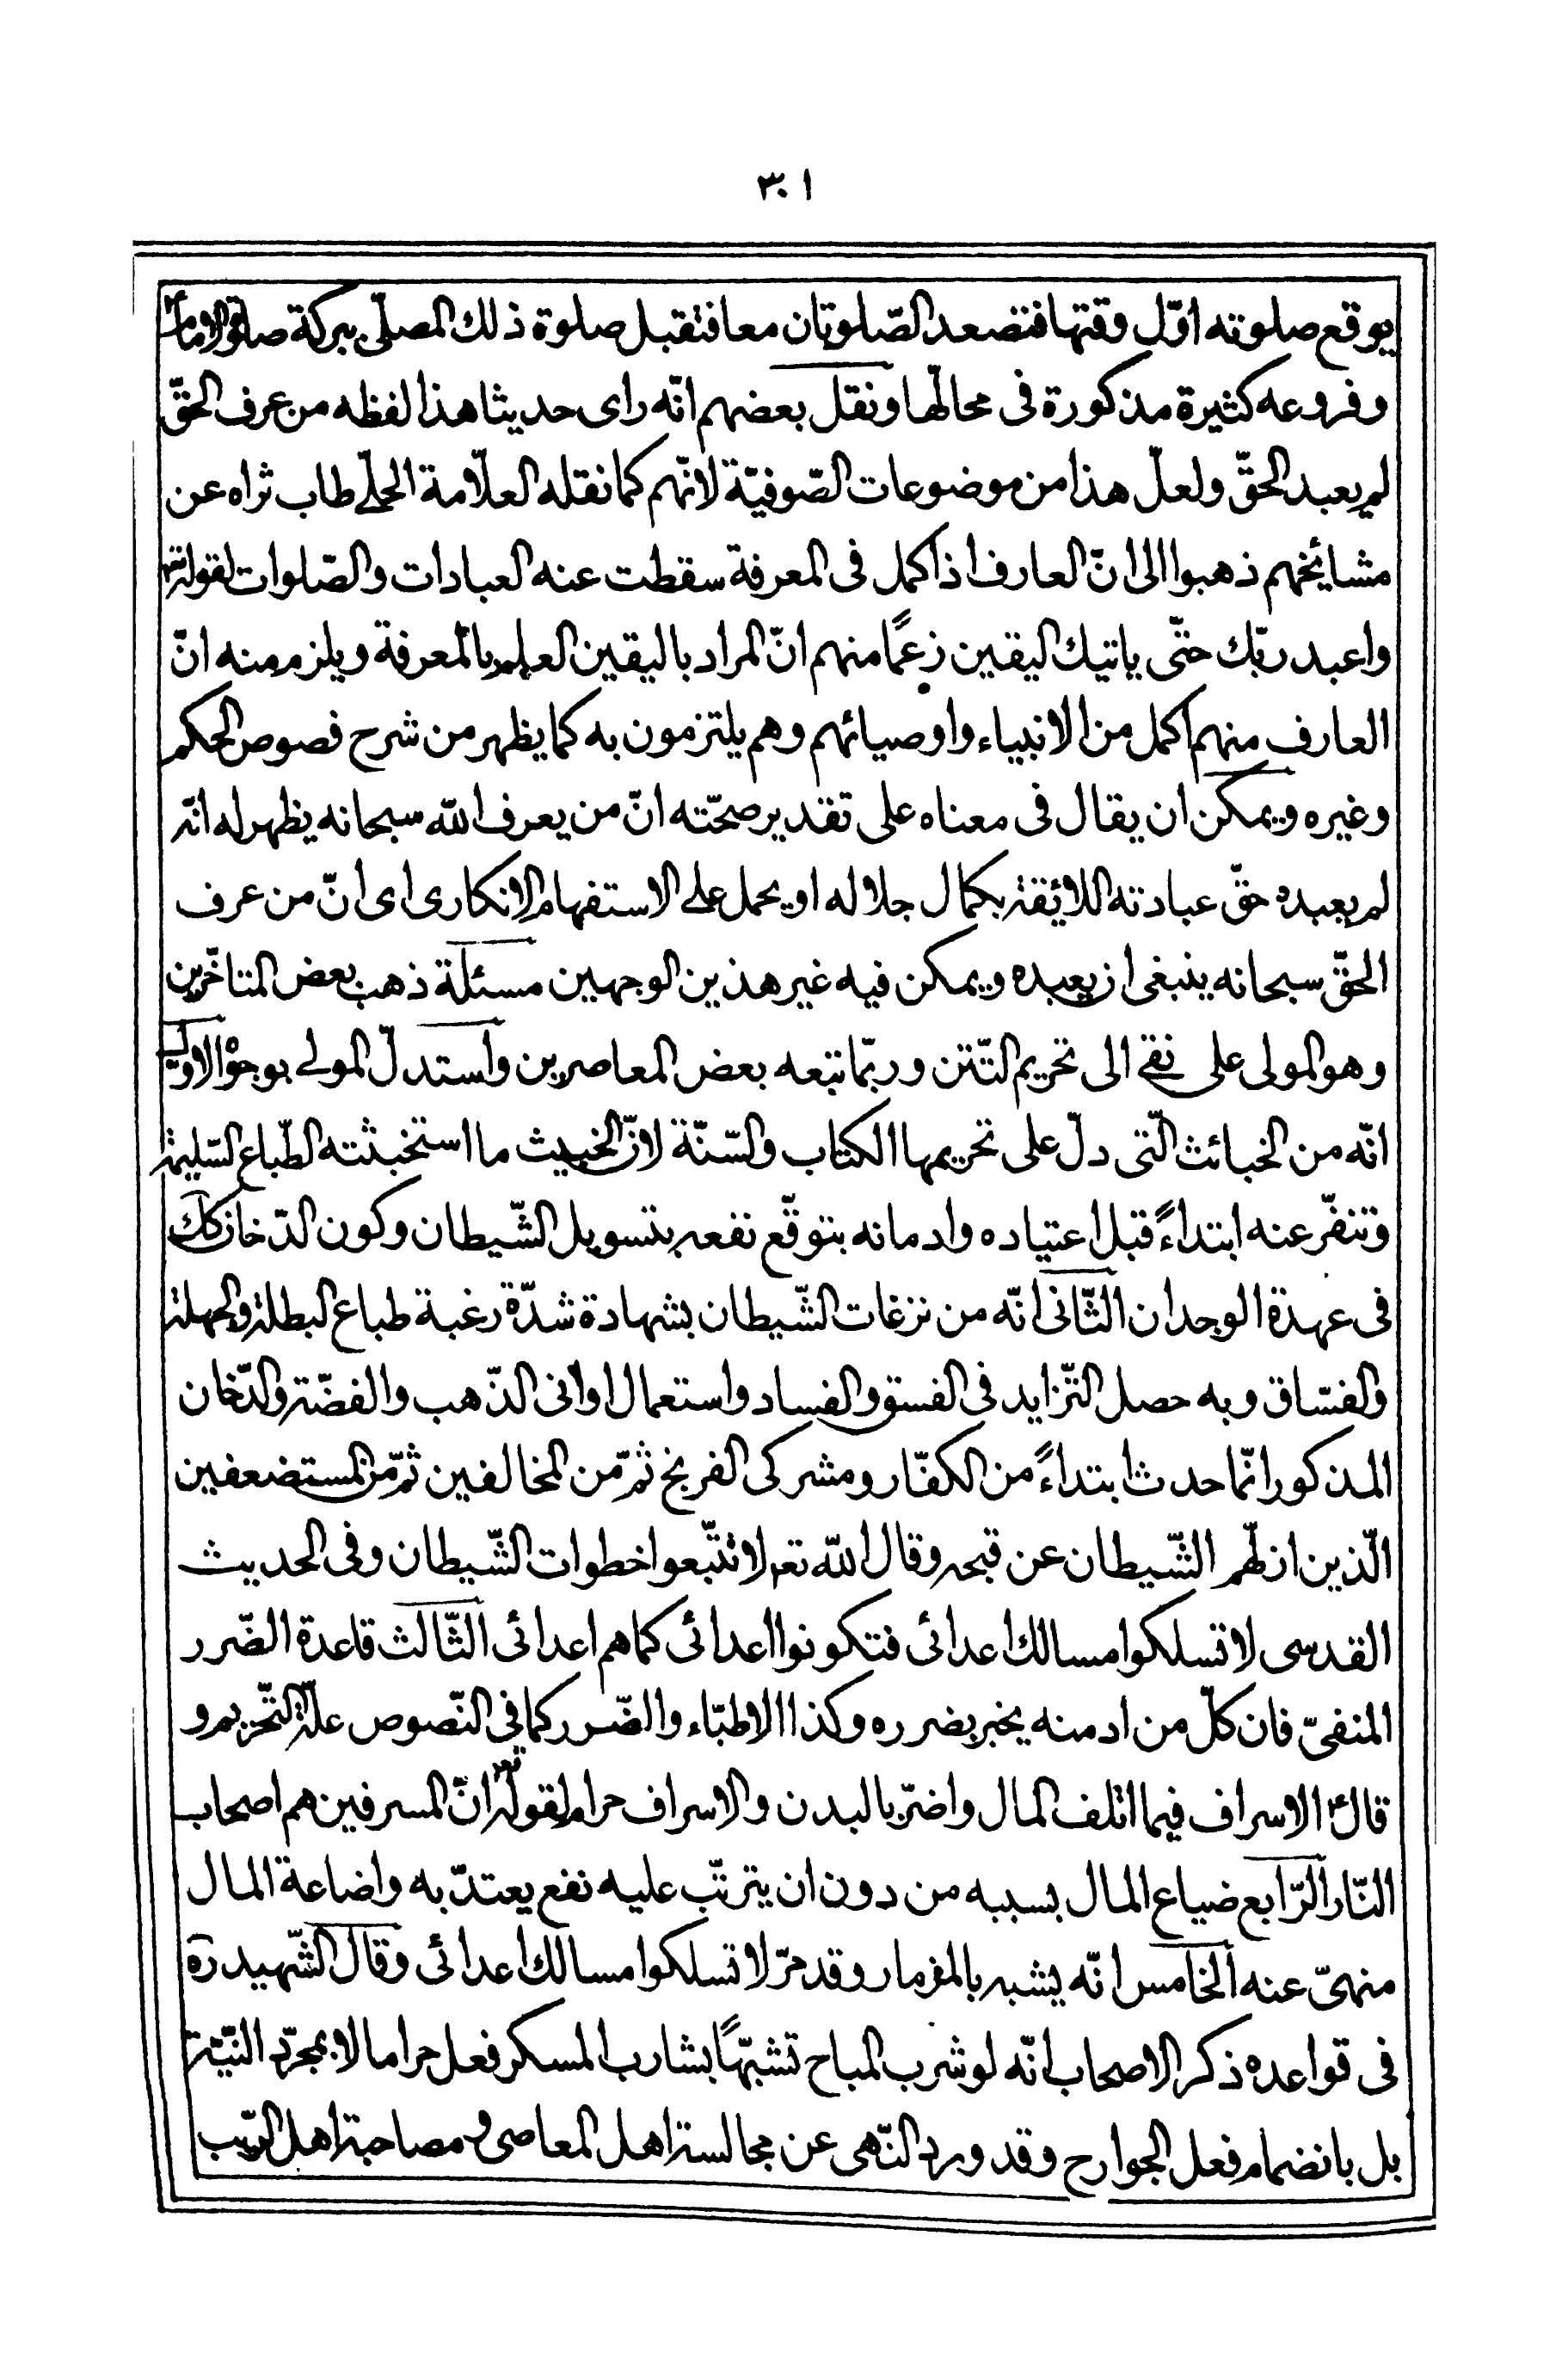 ٣٠١
يوقع صلوته اوّل وقتها فتصعد الصّلوتان معا فتقبل صلوة ذلك المصلّى ببركة صلوة الامام
وفروعه كثيرة مذكورة فى محالّها ونقل بعضهم انّه راى حديثا هذا لفظه من عرف الحقّ
لم يعبد الحقّ ولعلّ هذا من موضوعات الصّوفيّة لانّهم كما نقله العلّامة الحلّى طاب ثراه عن
مشايخهم ذهبوا الى انّ العارف اذا كمل فى المعرفة سقطت عنه العبادات والصّلوات لقوله تعه
واعبد ربّك حتّى ياتيك اليقين زعمًا منهم انّ المراد باليقين العلم بالمعرفة ويلزم منه انّ
العارف منهم اكمل من الانبياء واوصيائهم وهم يلتزمون به كما يظهر من شرح فصوص الحكم
وغيره ويمكن ان يقال فى معناه على تقدير صحّته انّ من يعرف الله سبحانه يظهر له انّه
لم يعبده حقّ عبادته اللائقة بكمال جلاله او يحمل على الاستفهام الانكارى اى انّ من عرف
الحقّ سبحانه ينبغى ان يعبده ويمكن فيه غير هذين الوجهين مسئلة ذهب بعض المتاخّرين
وهو المولى على نقى الى تحريم التّتن وربّما تبعه بعض المعاصرين واستدلّ المولى بوجوه الاوّل
انّه من الخبائث الّتى دلّ على تحريمها الكتاب والسّنّة لانّ الخبيث ما استخبثته الطّباع السّليمة
وتنفّر عنه ابتداءً قبل اعتياده وادمانه بتوقّع نفعه بتسويل الشّيطان وكون الدّخان كك
فى عهدة الوجدان الثّانى انّه من نزغات الشّيطان بشهادة شدّة رغبة طباع البطلة والجهلة
والفسّاق وبه حصل التّزايد فى الفسق والفساد واستعمال اوانى الذّهب والفضّة والدّخان
المذكور انّما حدث ابتداءً من الكفّار ومشركى الفرنج ثمّ من المخالفين ثمّ من المستضعفين
الّذين ازلّهم الشّيطان عن قبحه وقال الله تعه لا تتّبعوا خطوات الشّيطان وفى الحديث
القدسى لا تسلكوا مسالك اعدائى فتكونوا اعدائى كما هم اعدائى الثّالث قاعدة الضّرر
المنفىّ فان كلّ من ادمنه يخبر بضرره وكذا الاطبّاء والضّرر كما فى النّصوص علّة التّحريم و
قال ع الاسراف فيما اتلف المال واضرّ بالبدن والاسراف حرام لقوله تعه انّ المسرفين هم اصحاب
النّار الرّابع ضياع المال بسببه من دون ان يترتّب عليه نفع يعتدّ به واضاعة المال
منهىّ عنه الخامس انّه يشبه بالمزمار وقد مرّ لا تسلكوا مسالك اعدائى وقال الشّهيد ره
فى قواعده ذكر الاصحاب انّه لو شرب المباح تشبّهًا بشارب المسكر فعل حراما لا بمجرّد النّيّة
بل بانضمام فعل الجوارح وقد ورد النّهى عن مجالسة اهل المعاصى ومصاحبة اهل الرّيب